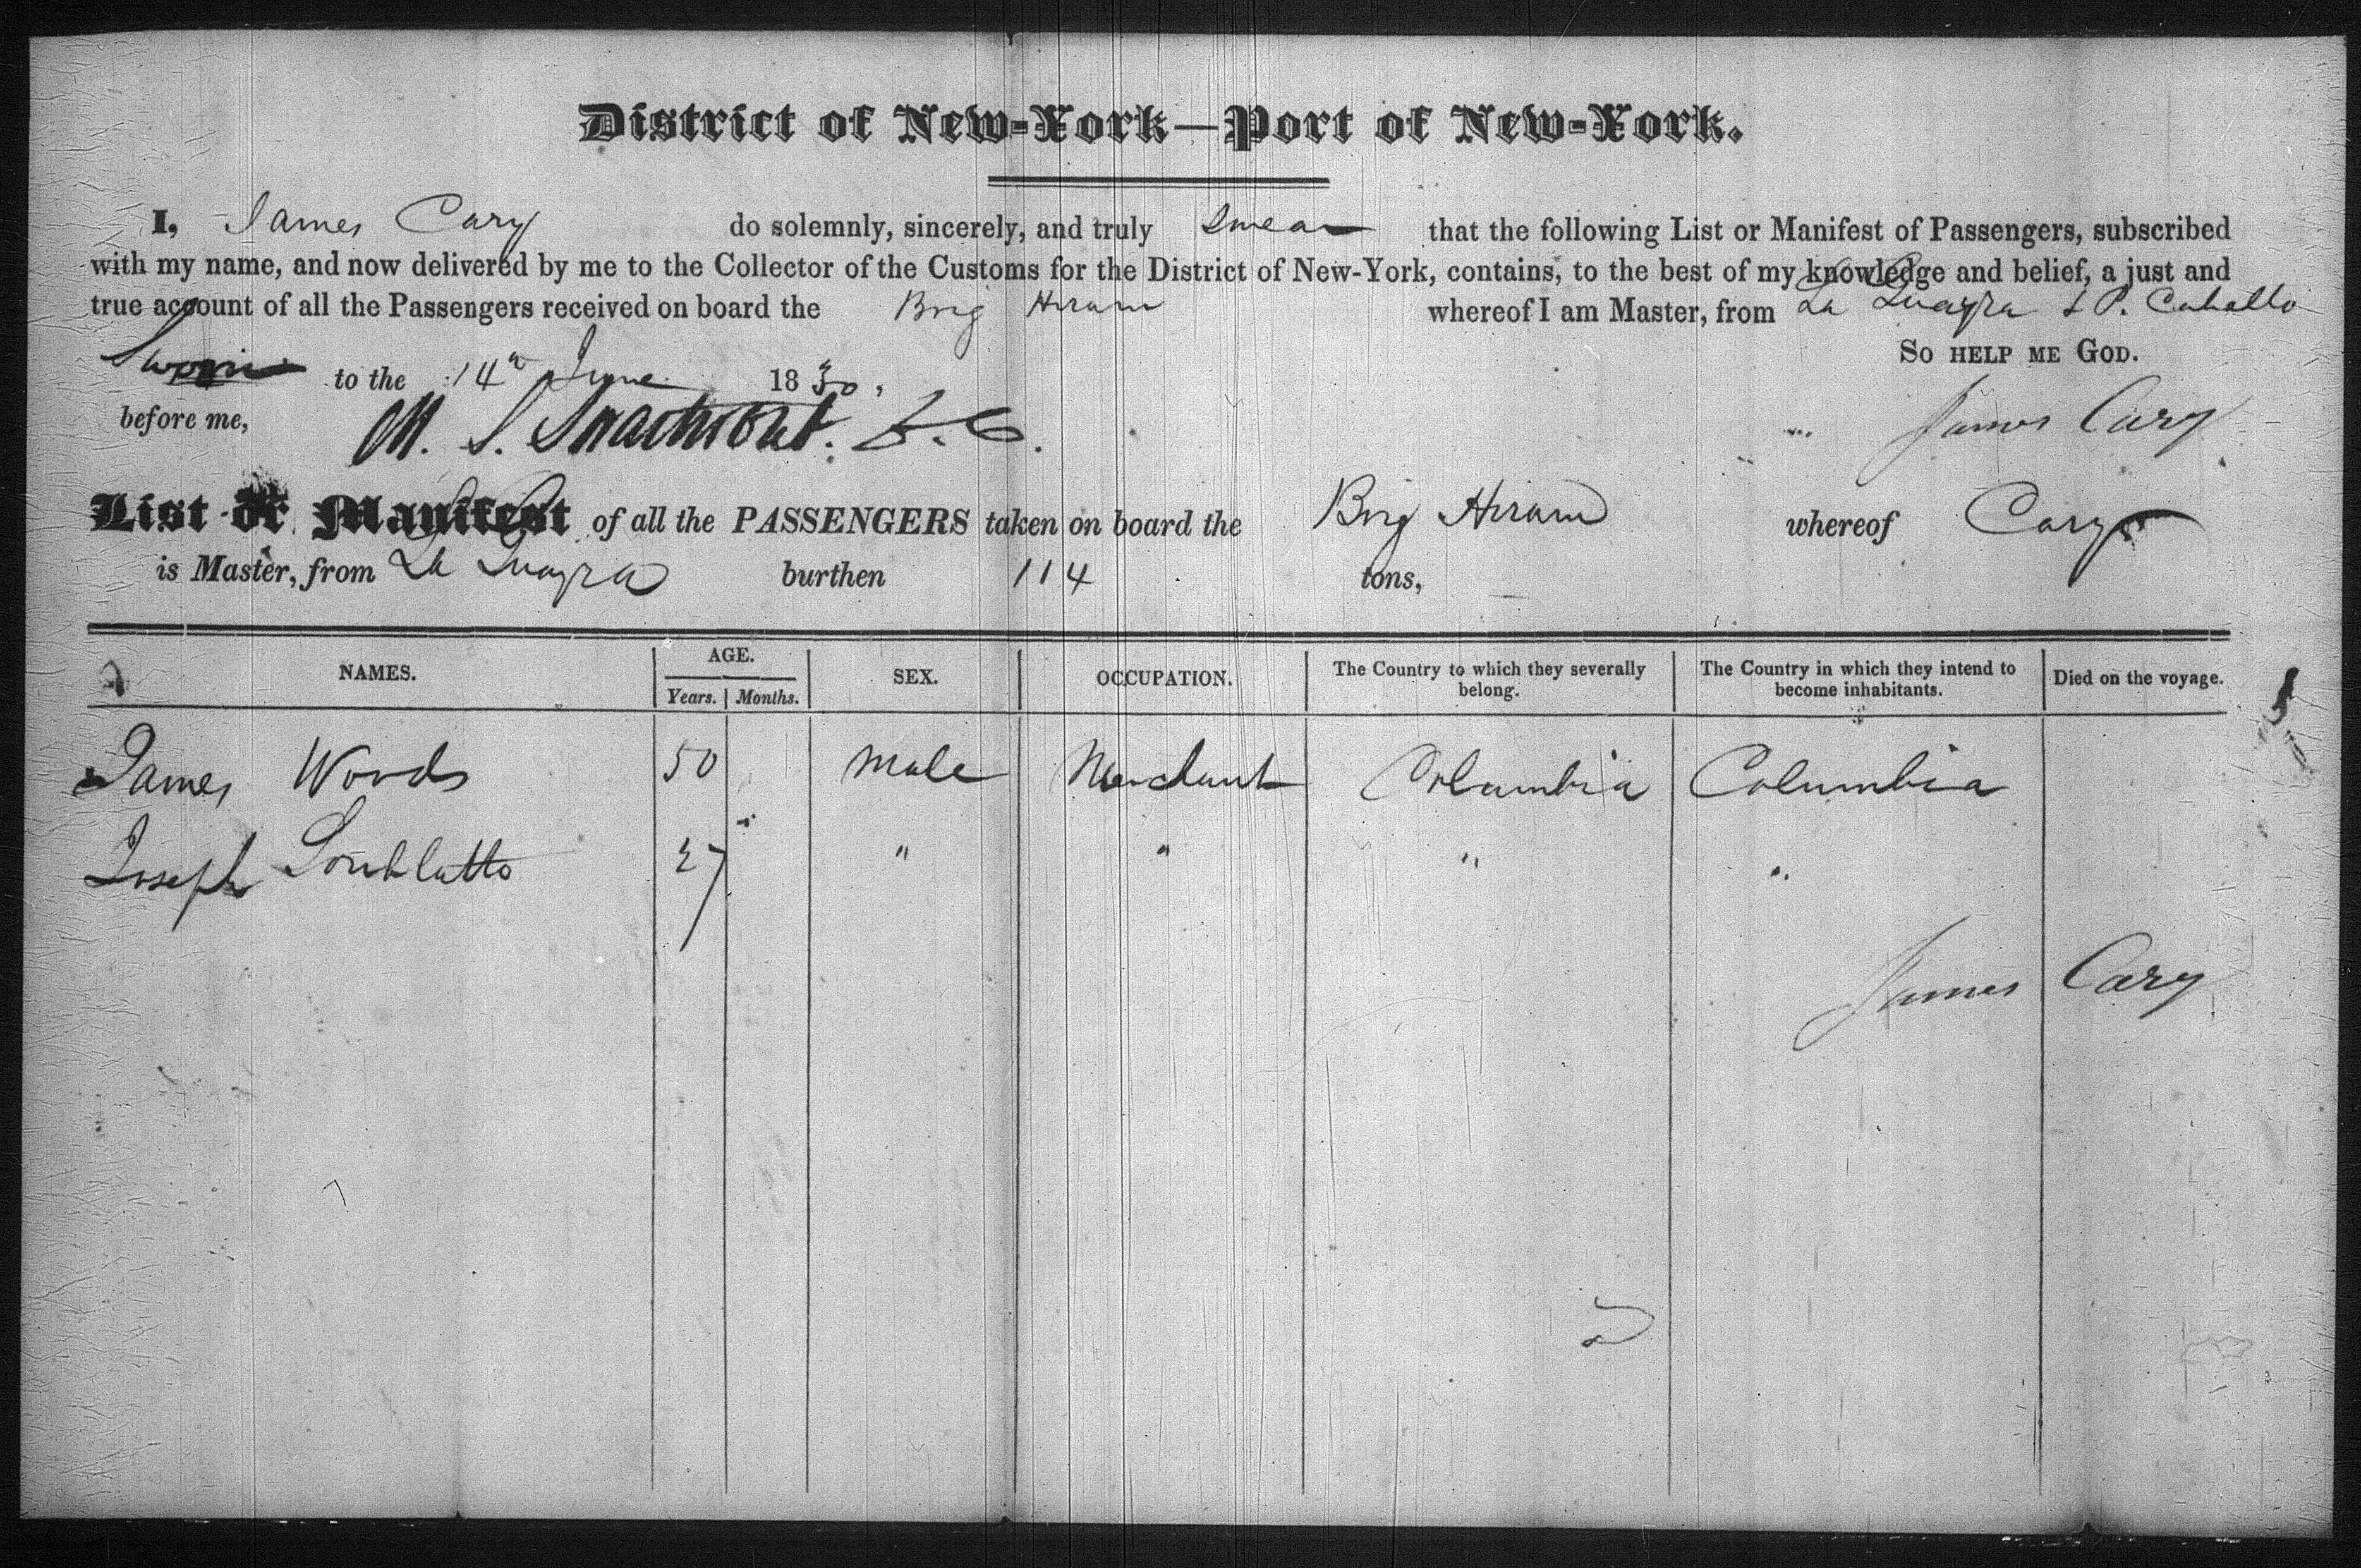 District of New-York—Port of New-York.
I, James Cary do solemnly, sincerely, and truly swear that the following List or Manifest of Passengers, subscribed
with my name, and now delivered by me to the Collector of the Customs for the District of New-York, contains, to the best of my knowledge and belief, a just and
true account of all the Passengers received on board the Brig Hiram whereof I am Master, from La Guayra & P. Cabello
So help me God.
Sworn to the 14th June 1830,
before me, M. S. James Cary
List or Manifest of all the PASSENGERS taken on board the Brig Hiram whereof Cary
is Master, from La Guayra burthen 114 tons,
NAMES. AGE. Years. Months. SEX. OCCUPATION. The Country to which they severally belong. The Country in which they intend to become inhabitants. Died on the voyage.
James Woods 50 Male Merchant Columbia Columbia
Joseph 27 " " " "
James Cary